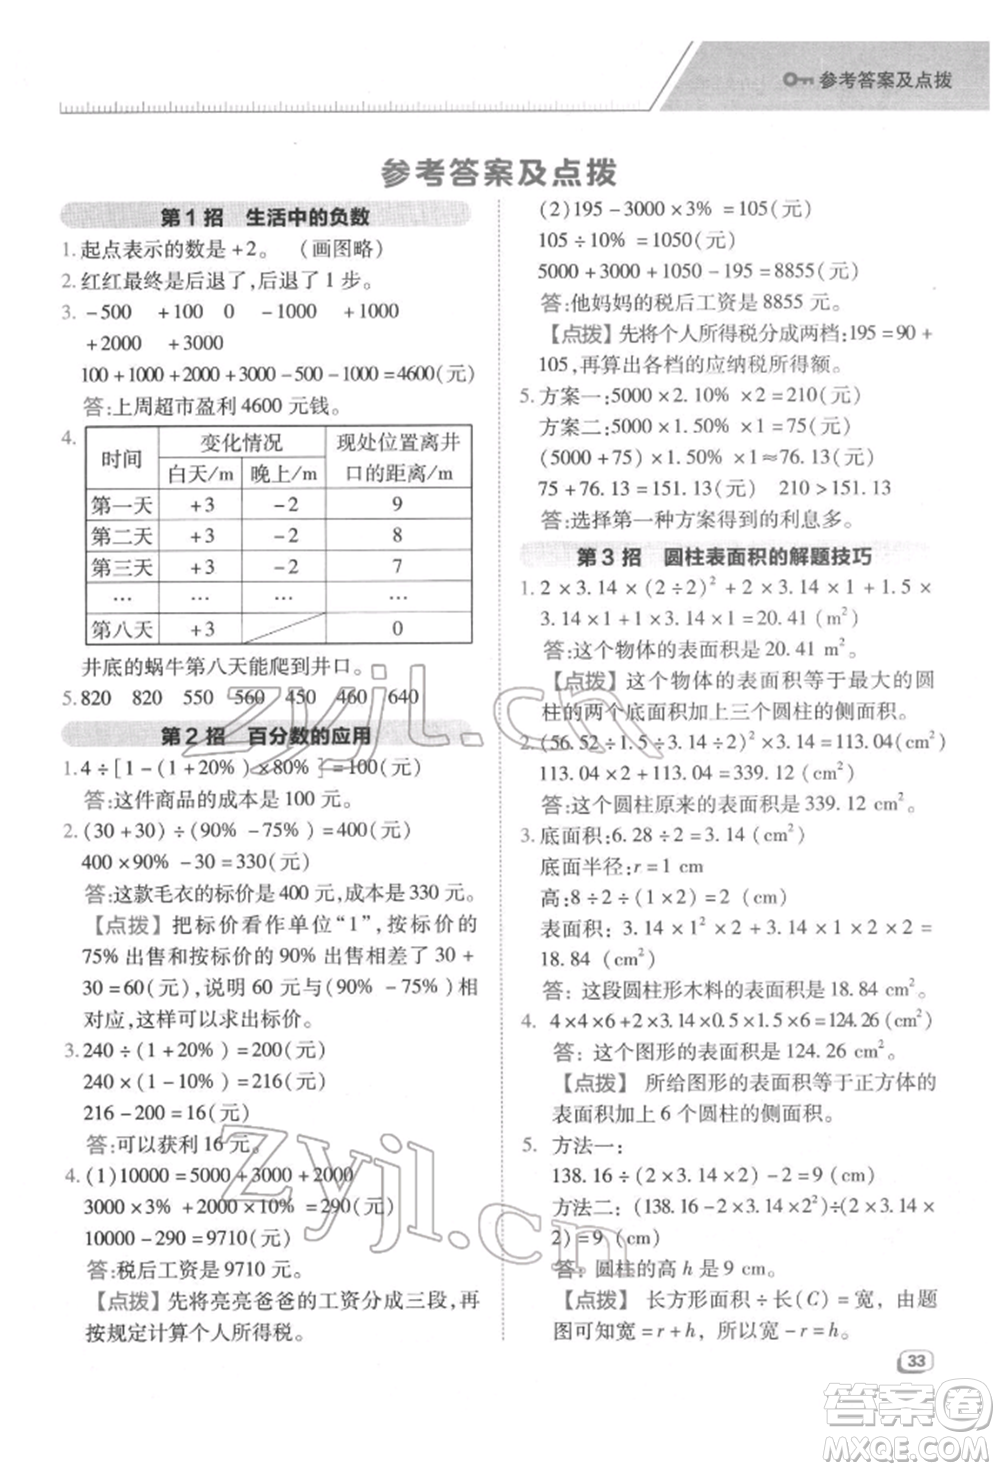 参考答案及点拨
参考答案及点拨
第1招 生活中的负数
1. 起点表示的数是+2。 (画图略)
2. 红红最终是后退了,后退了1步。
3. -500 +100 0 -1000 +1000
+2000 +3000
100+1000+2000+3000-500-1000=4600(元)
答:上周超市盈利4600元钱。
4.
时间 变化情况 现处位置离井口的距离/m
白天/m 晚上/m
第一天 +3 -2 9
第二天 +3 -2 8
第三天 +3 -2 7
… … … …
第八天 +3 0
井底的蜗牛第八天能爬到井口。
5. 820 820 550 560 450 460 640
第2招 百分数的应用
1. 4÷[1-(1+20%)×80%]=100(元)
答:这件商品的成本是100元。
2. (30+30)÷(90%-75%)=400(元)
400×90%-30=330(元)
答:这款毛衣的标价是400元,成本是330元。
【点拨】把标价看作单位“1”,按标价的
75%出售和按标价的90%出售相差了30+
30=60(元),说明60元与(90%-75%)相
对应,这样可以求出标价。
3. 240÷(1+20%)=200(元)
240×(1-10%)=216(元)
216-200=16(元)
答:可以获利16元。
4. (1)10000=5000+3000+2000
3000×3%+2000×10%=290(元)
10000-290=9710(元)
答:税后工资是9710元。
【点拨】先将亮亮爸爸的工资分成三段,再
按规定计算个人所得税。
(2)195-3000×3%=105(元)
105÷10%=1050(元)
5000+3000+1050-195=8855(元)
答:他妈妈的税后工资是8855元。
【点拨】先将个人所得税分成两档:195=90+
105,再算出各档的应纳税所得额。
5. 方案一:5000×2.10%×2=210(元)
方案二:5000×1.50%×1=75(元)
(5000+75)×1.50%×1≈76.13(元)
75+76.13=151.13(元) 210>151.13
答:选择第一种方案得到的利息多。
第3招 圆柱表面积的解题技巧
1. 2×3.14×(2÷2)²+2×3.14×1+1.5×
3.14×1+1×3.14×1=20.41(m²)
答:这个物体的表面积是20.41 m²。
【点拨】这个物体的表面积等于最大的圆
柱的两个底面积加上三个圆柱的侧面积。
2. (56.52÷1.5÷3+3)×2=113.04(cm²)
113.04+113.04×2=339.12(cm²)
答:这个圆柱原来的表面积是339.12 cm²。
3. 底面积:6.28÷2=3.14(cm²)
底面半径:r=1 cm
高:8÷2÷(1×2)=2(cm)
表面积:3.14×1²×2+3.14×1×2×2=
18.84(cm²)
答:这段圆柱形木料的表面积是18.84 cm²。
4. 4×4×6+2×3.14×0.5×1.5×6=124.26(cm²)
答:这个图形的表面积是124.26 cm²。
【点拨】所给图形的表面积等于正方体的
表面积加上6个圆柱的侧面积。
5. 方法一:
138.16÷(2×3.14×2)-2=9(cm)
方法二:(138.16-2×3.14×2²)÷(2×3.14×
2)=9(cm)
答:圆柱的高h是9 cm。
【点拨】长方形面积÷长(C)=宽,由题
图可知宽=r+h,所以宽-r=h。
33
zyjl.cn
zyjl.cn
答案圈
MXQE.COM